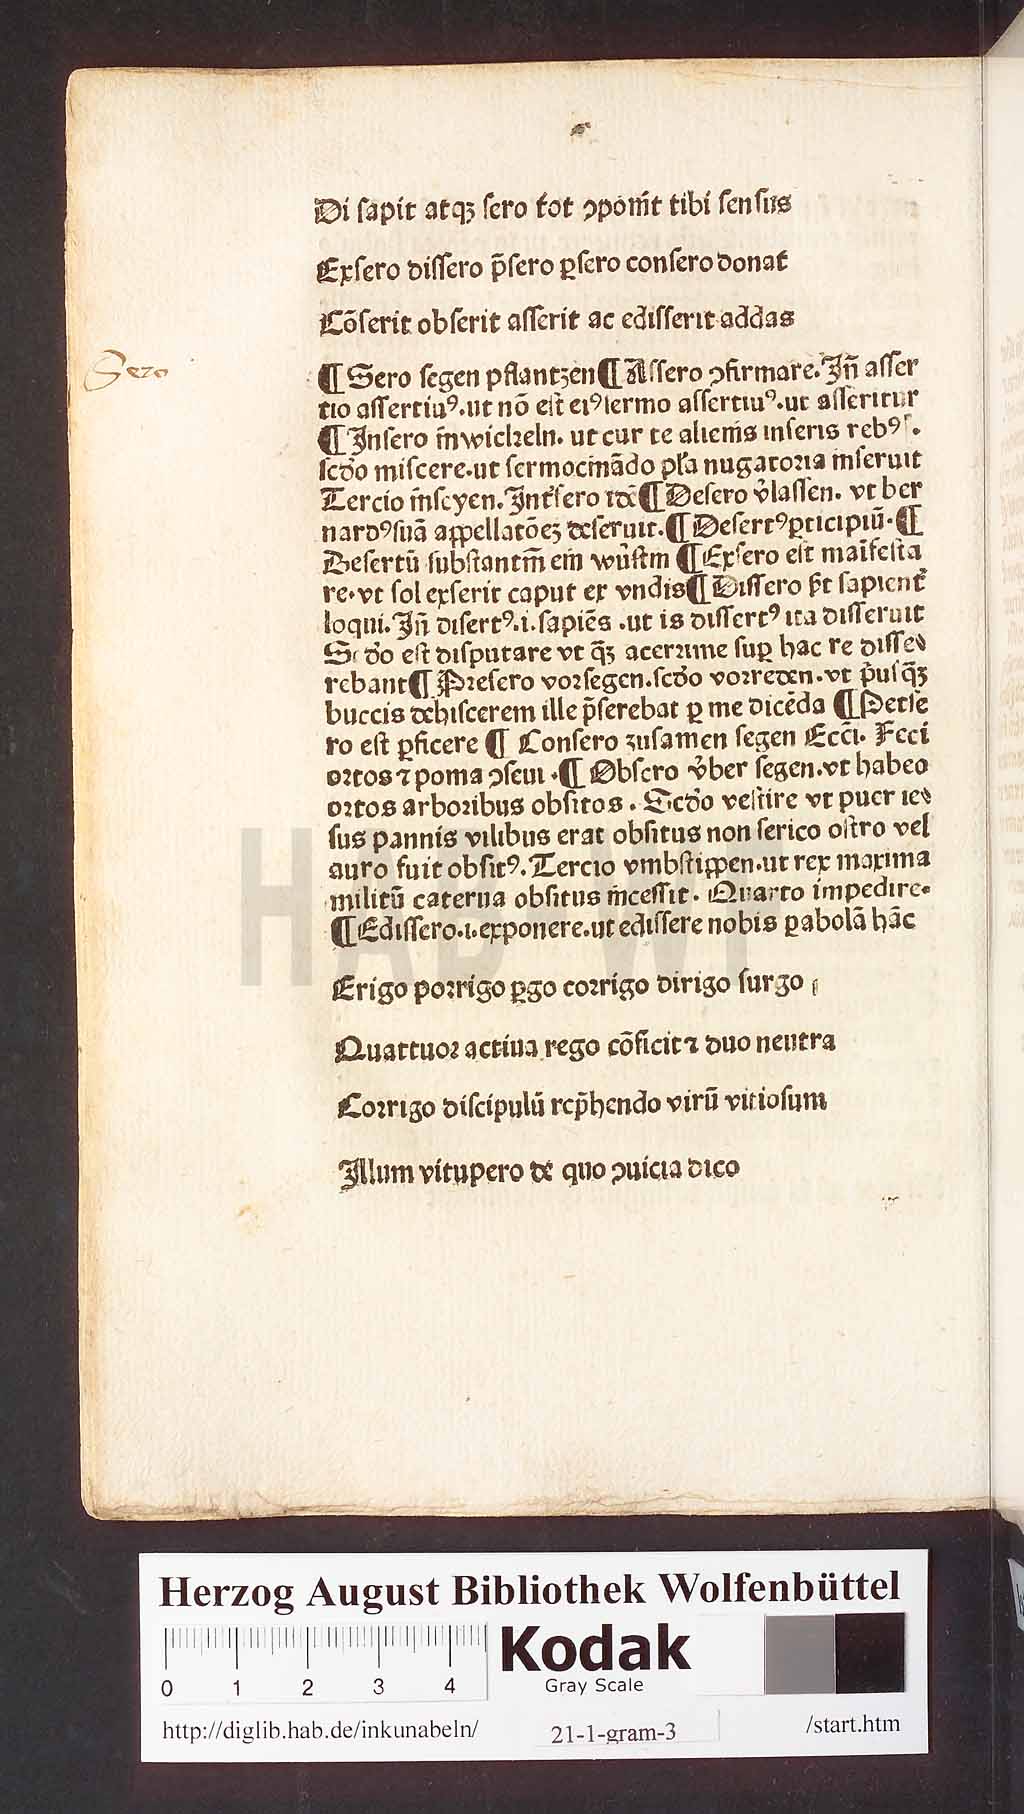 Di sapit atqꝫ sero tot ꝯpom̄t tibi sensus
Exsero dissero p̄sero ꝑsero consero donat
Cōserit obserit asserit ac edisserit addas
Sero
¶ Sero segen pflantzen ¶ Assero ꝯfirmare. Jn̄ asser
tio assertiuꝰ. ut nō est eiꝰ sermo assertiuꝰ. ut asseritur
¶ Jnsero īnwickeln. ut cur te alienis inseris rebꝰ.
scd̄o miscere. ut sermocinādo pl̄a nugatoria inseruit
Tercio īnseyen. Int̄sero idē ¶ Desero v̄lassen. vt ber
nardꝰ suā appellatōeꝫ deseruit. ¶ Desertꝰ ꝑticipiū. ¶
Desertū substantiū ein wūstin ¶ Exsero est manifesta
re. vt sol exserit caput ex vndis ¶ Dissero ē sapient̄
loqui. Jn̄ disertꝰ .i. sapiēs . ut is dissertꝰ ita disseruit
Scd̄o est disputare vt qꝫ acerrime suꝑ hac re disse
rebant ¶ Presero vorsegen. scd̄o vorreden. vt pusqꝫ
buccis dehiscerem ille p̄serebat ꝑ me dicēda ¶ Perse
ro est ꝑficere ¶ Consero zusamen segen Ecci. Feci
ortos ⁊ poma ꝯseui . ¶ Obsero v̄ber segen. vt habeo
ortos arboribus obsitos . Scd̄o vestire vt puer ie
sus pannis vilibus erat obsitus non serico ostro vel
auro fuit obsitꝰ. Tercio vmbstippen. ut rex maxima
militū caterua obsitus incessit . Quarto impedire.
¶ Edissero .i. exponere. ut edissere nobis ꝑabolā hāc
Erigo porrigo ꝑgo corrigo dirigo surgo
Quattuor actiua rego cōficit ⁊ duo neutra
Corrigo discipulū rep̄hendo virū vitiosum
Illum vitupero de quo ꝯuicia dico
HAB WF
Herzog August Bibliothek Wolfenbüttel
0 1 2 3 4
Kodak
Gray Scale
http://diglib.hab.de/inkunabeln/
21-1-gram-3
/start.htm